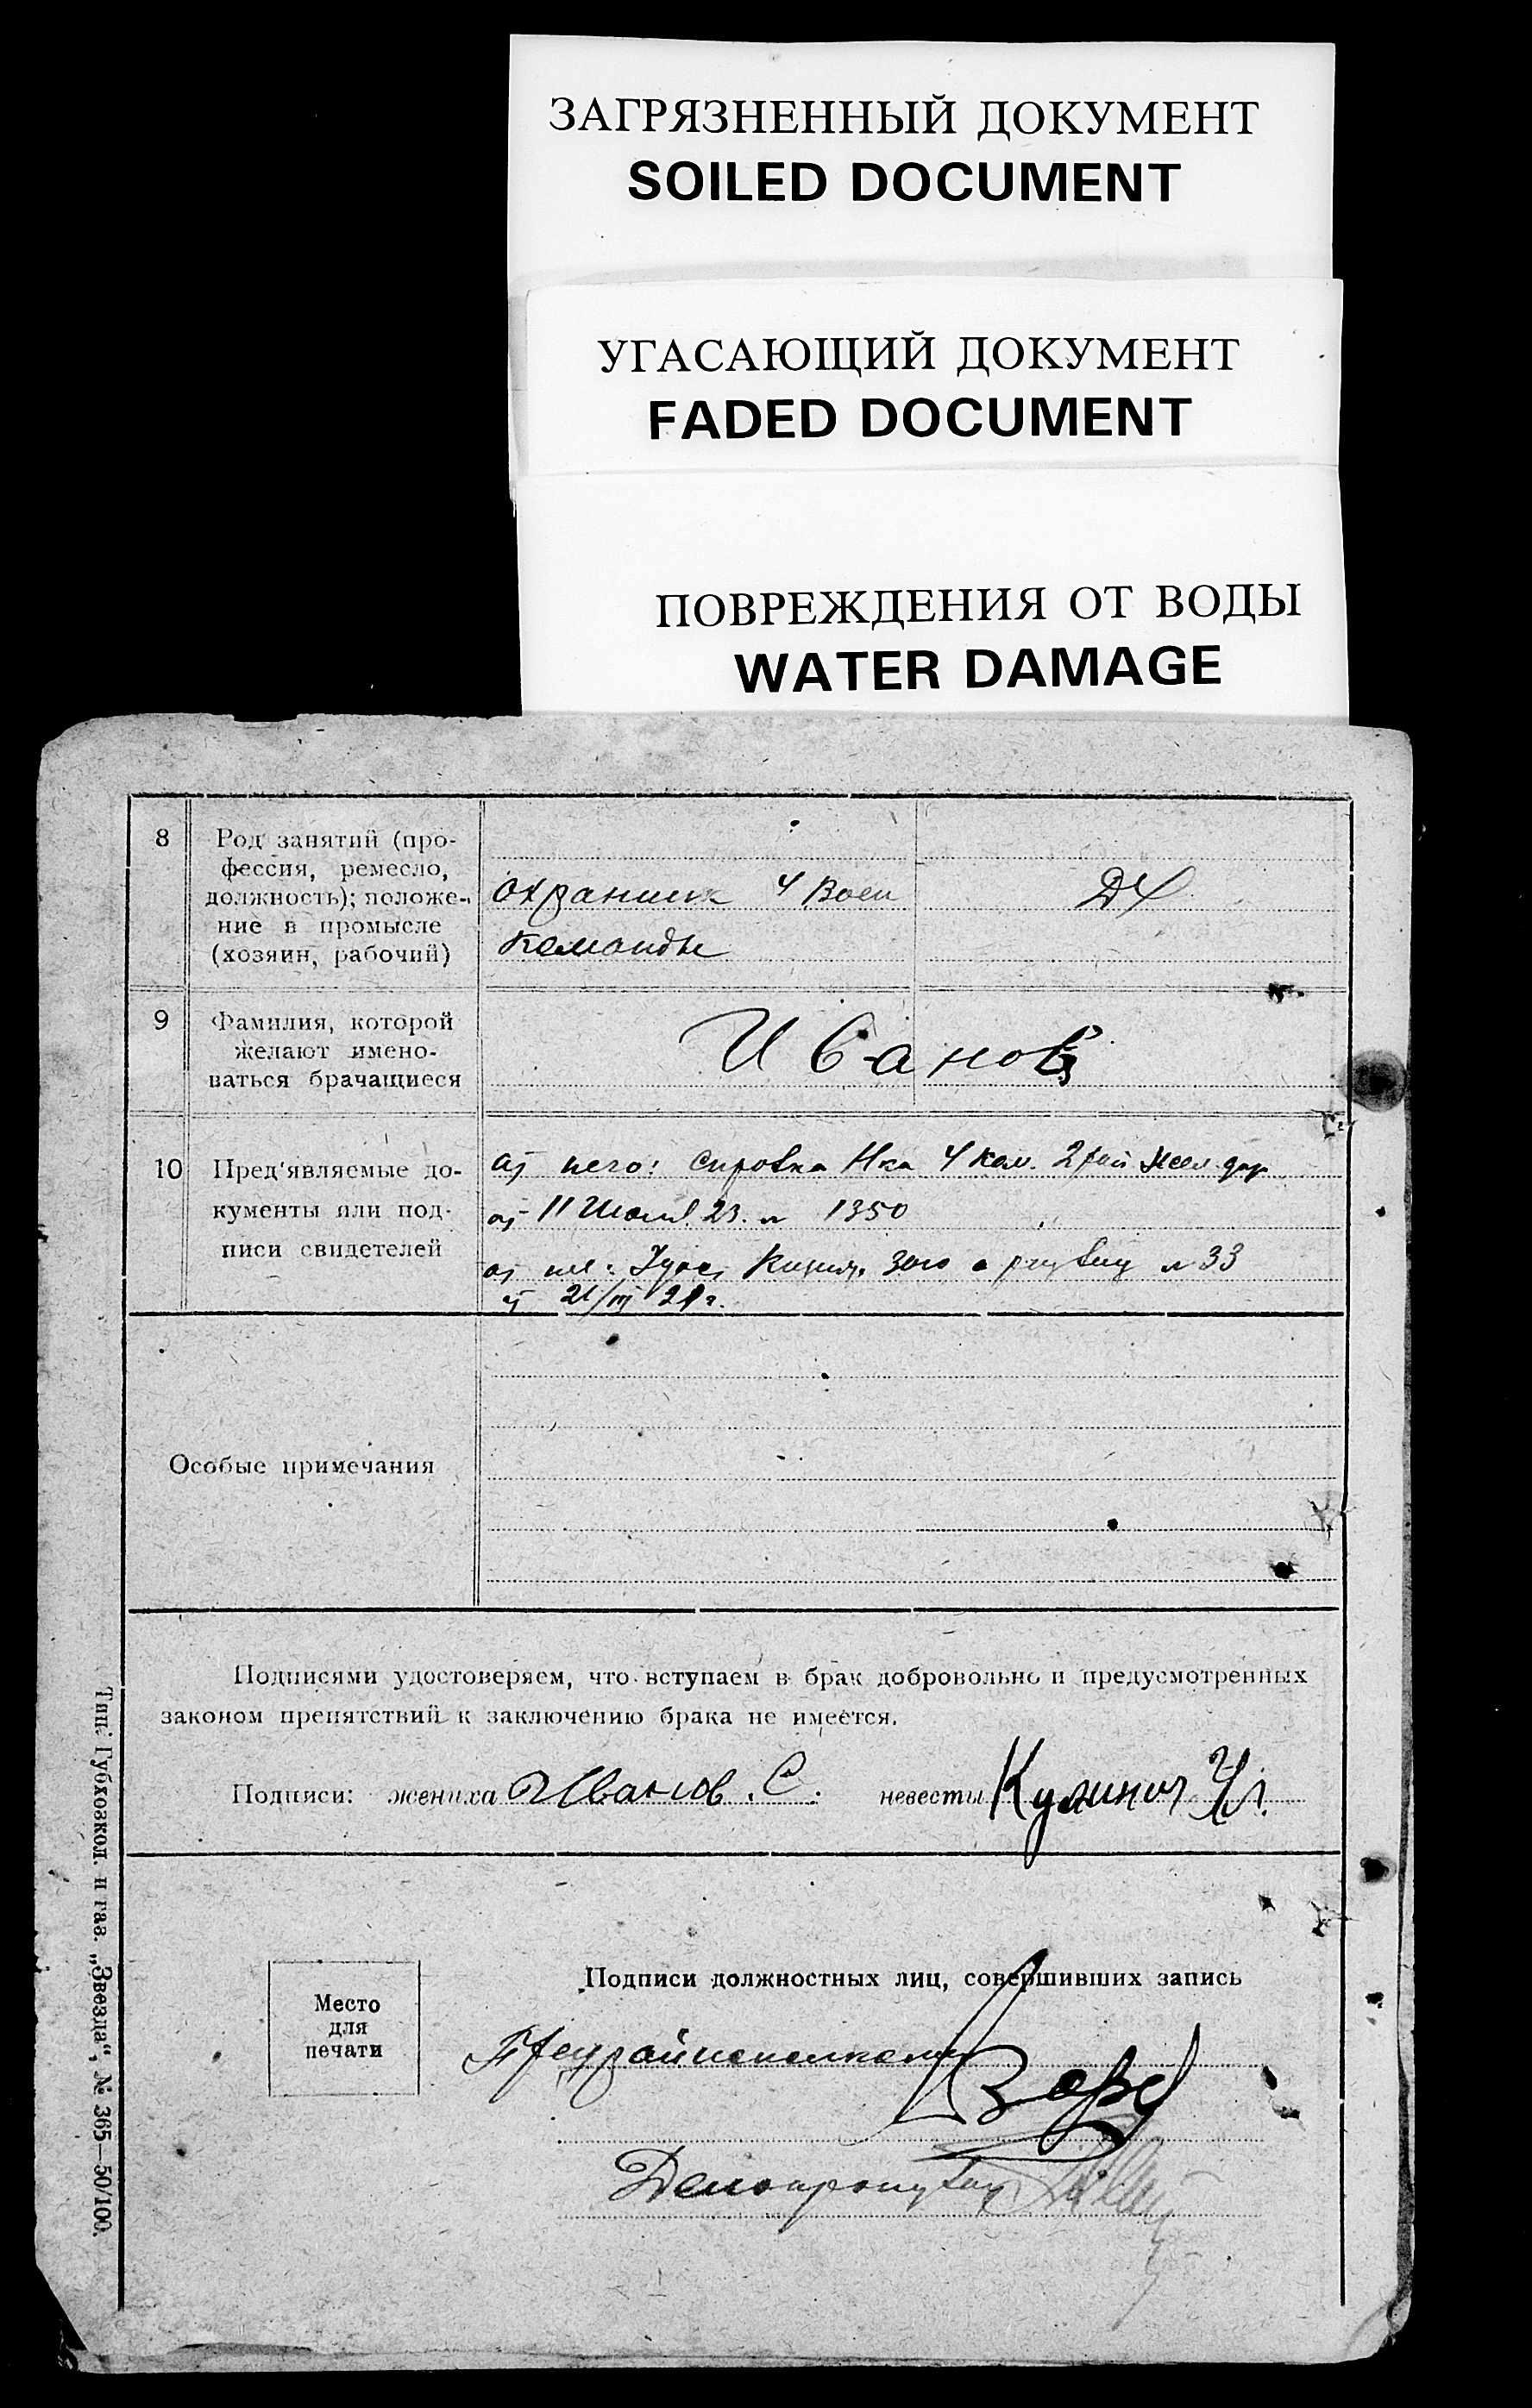 ЗАГРЯЗНЕННЫЙ ДОКУМЕНТ
SOILED DOCUMENT
УГАСАЮЩИЙ ДОКУМЕНТ
FADED DOCUMENT
ПОВРЕЖДЕНИЯ ОТ ВОДЫ
WATER DAMAGE
8
Род занятий (про-
фессия, ремесло,
должность); положе-
ние в промысле
(хозяин, рабочий)
охраник 4 Воен
команды
ДХ
9
Фамилия, которой
желают имено-
ваться брачащиеся
Иванов
10
Пред'являемые до-
кументы или под-
писи свидетелей
него: 4 ком.
11 23. № 1350
№ 33
21/III
Особые примечания
Подписями удостоверяем, что вступаем в брак добровольно и предусмотренных
законом препятствий к заключению брака не имеется.
Подписи: жениха Иванов. С. невесты
Место
для
печати
Подписи должностных лиц, совершивших запись
Предрайисполкома
Делопроизв
Тип. Губхозкол. и газ. „Звезда“, № 365—50/100.